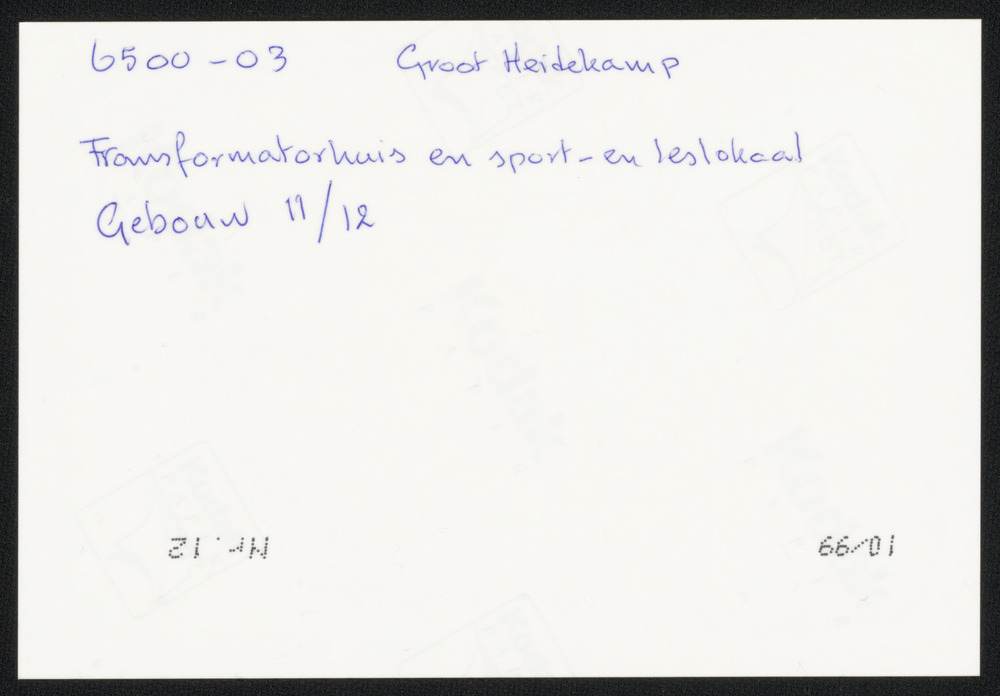 6500-03 Groot Heidekamp
Transformatorhuis en sport- en leslokaal
Gebouw 11/12
10/99 Nr. 12
Kodak